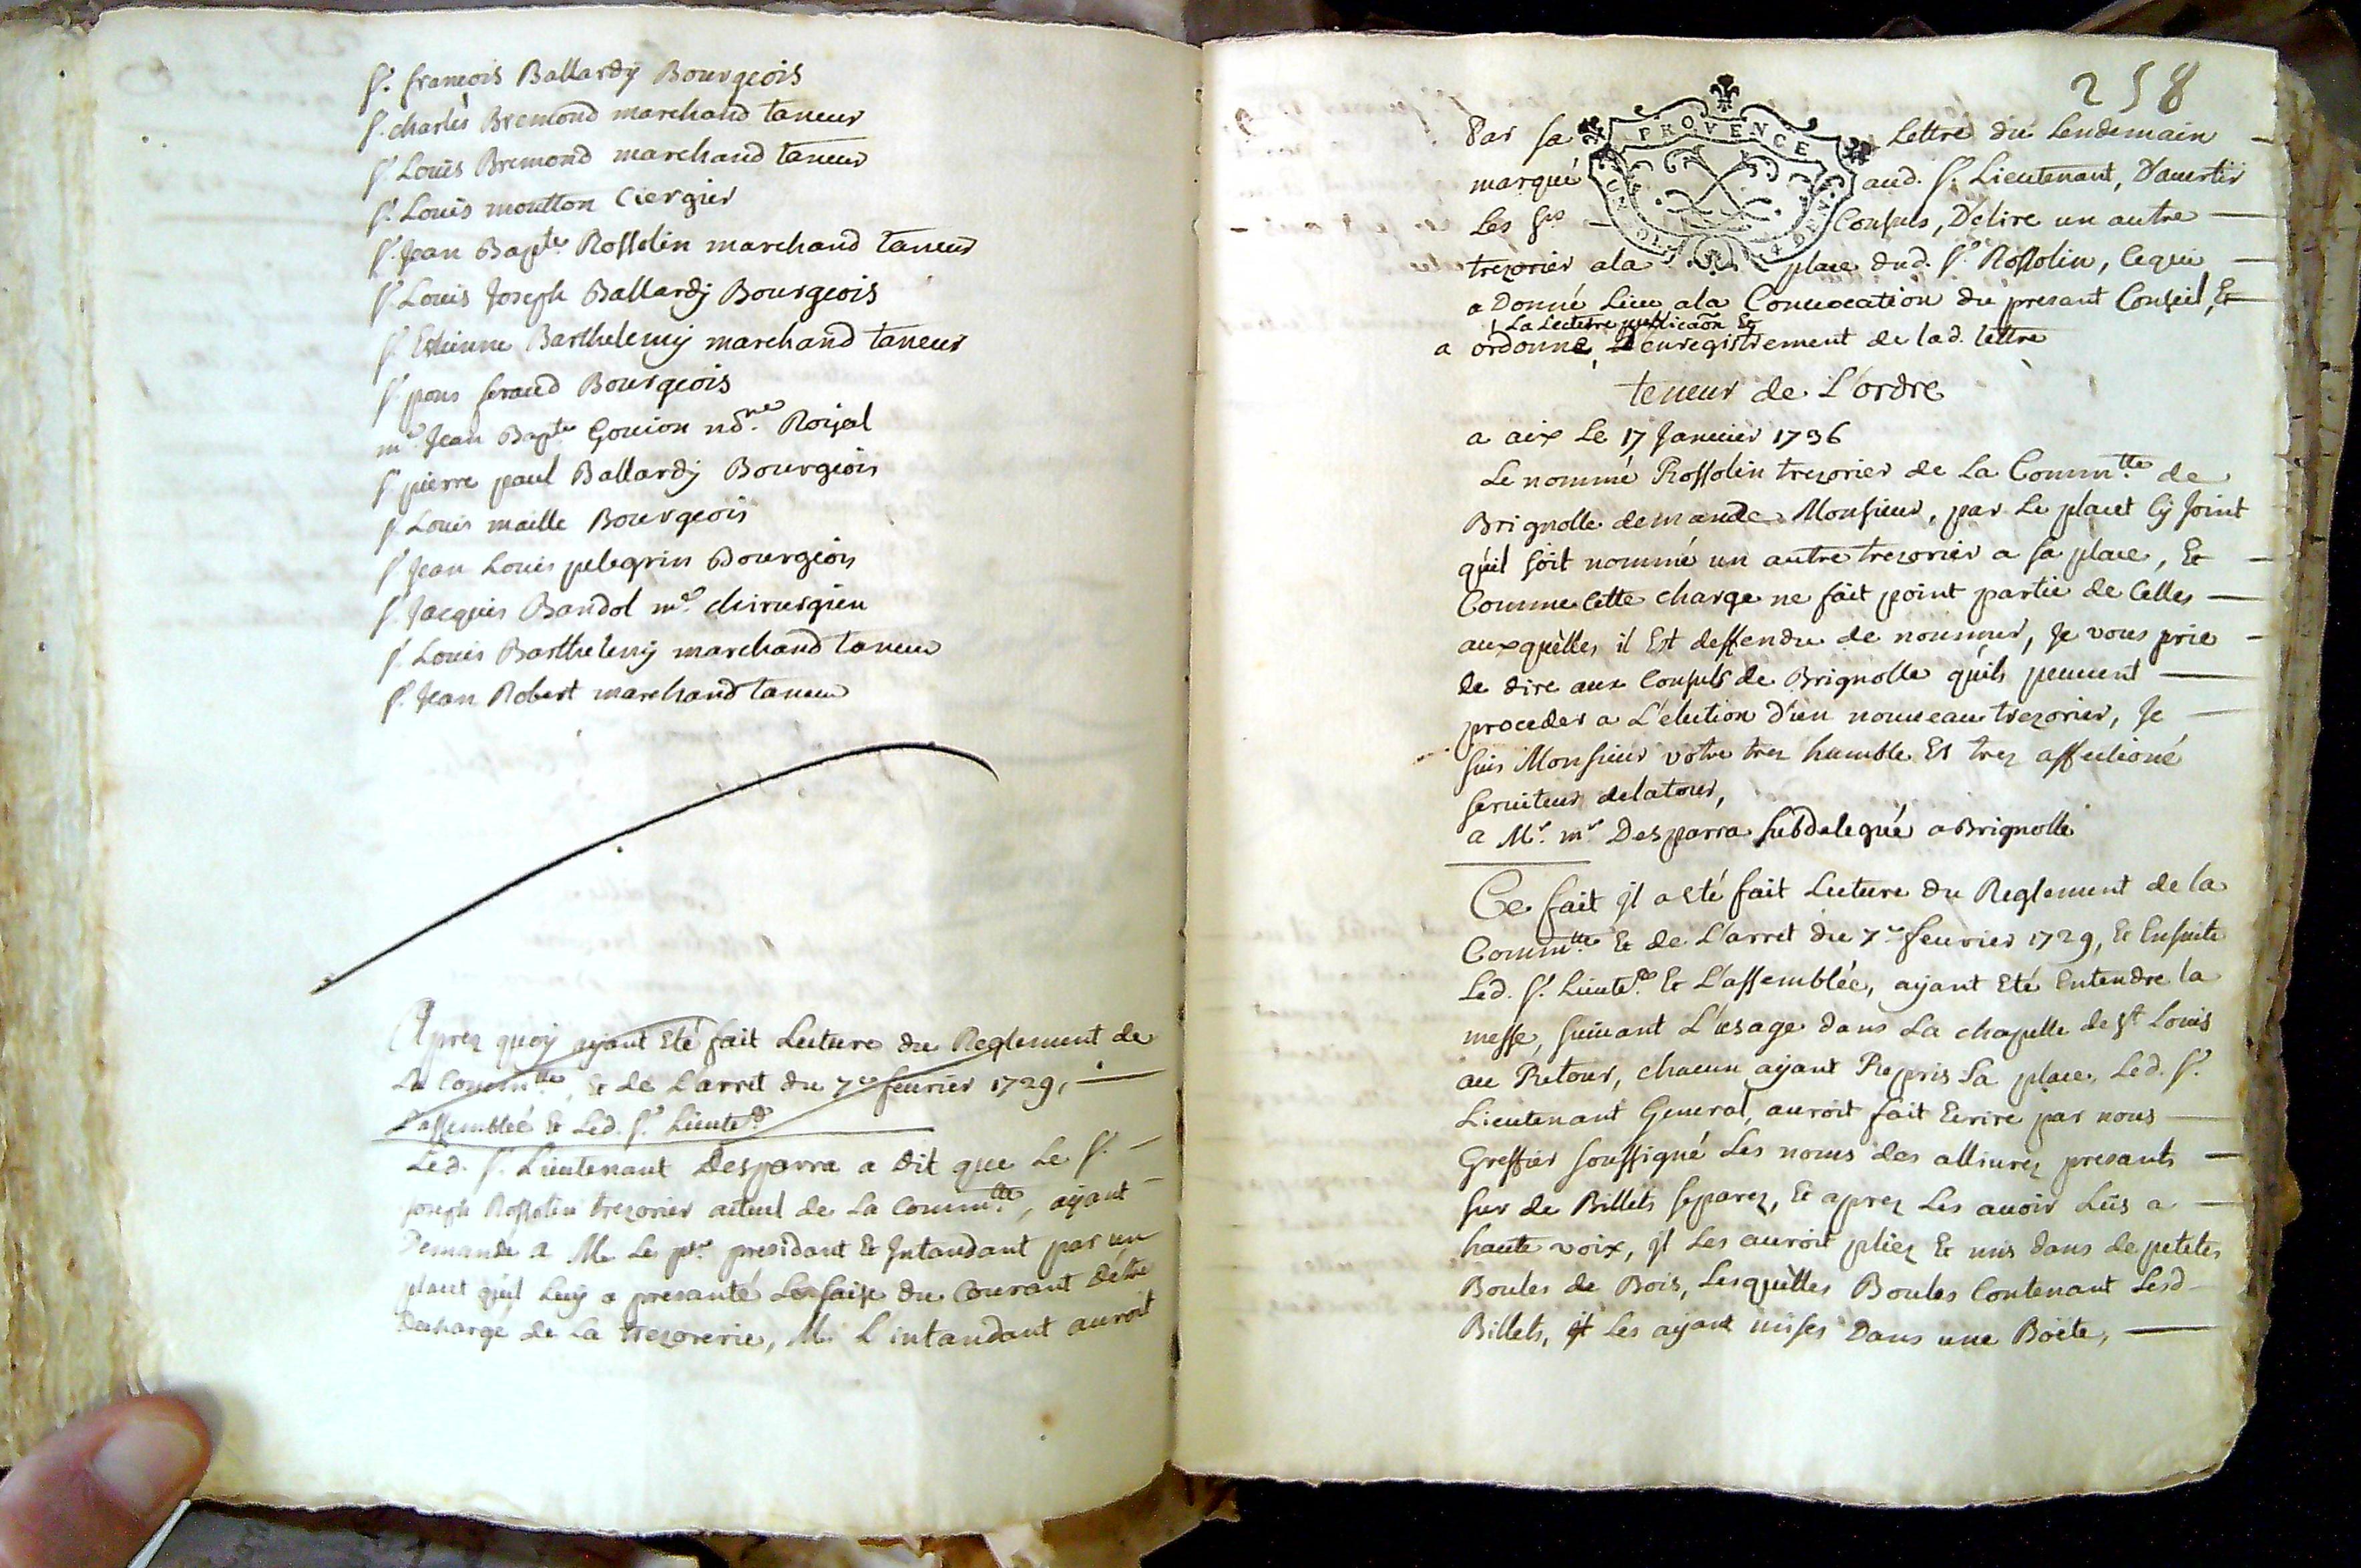 Sr. francois Ballardÿ Bourgeois
Sr. charles Bremond marchand taneur
Sr. Louis Bremond marchand taneur
Sr. Louis moutton Ciergier
Sr. Jean Bapte. Rossolin marchand taneur
Sr. Louis Joseph Ballardÿ Bourgeois
Sr. Estienne Barthelemÿ marchand taneur
Sr. pons feraud Bourgeois
me. Jean Bapte. Gouion nore. Roÿal
Sr. pierre paul Ballardÿ Bourgeois
Sr. Louis maille Bourgeois
Sr. Jean Louis pelegrin Bourgeois
Sr. Jacques Bandol me. chirurgien
Sr. Louis Barthelemÿ marchand taneur
Sr. Jean Robert marchand taneur
Aprez quoÿ ayant Eté fait Lecture du Reglement de
La Commtte., Et de Larret du 7e feurier 1729,
L'assemblée Et Led. Sr. Lieutet.
Led. Sr. Lieutenant Desparra a dit que Le Sr.
Joseph Rossolin trezorier actuel de La Commtte., aÿant
Demande a M. Le pr. presidant Et Intandant par un
placet qu'il Luÿ a presanté Le saise du Courant D'être
Decharge de La trezorerie, M. L'intandant auroit
258
PROVENCE
Par sa Lettre du Lendemain
marqué aud. Sr. Lieutenant, D'auertir
Les Srs Consuls, D'elire un autre
trezorier a la place dud. Sr. Rossolin, Ce qui
a Donné Lieu a la Conuocation du presant Conseil, Et
La Lecture publicaon Et
a ordonne L'enregistrement de lad. lettre
teneur de L'ordre
a aix Le 17 Januier 1736
Le nommé Rossolin trezorier de La Commtte. de
Brignolle demande Monsieur, par Le placet Cÿ Joint
qu'il soit nommé un autre trezorier a sa place, Et
Comme Cette charge ne fait point partie de Celles
auxquèlles il Est deffendu de nommer, Je vous prie
de dire aux Consuls de Brignolle qu'ils peuuent
proceder a L'election d'un nouueau trezorier, Je
suis Monsieur votre trez humble Et trez affectioné
seruiteur delatour,
a Mr. mr. Desparra subdelegué a Brignolle
Ce fait Il a eté fait Lecture du Reglement de la
Commtte. Et de L'arret du 7e feurier 1729, Et Ensuite
Led. Sr. Lieutet. Et L'assemblée, aÿant Eté Entendre la
messe, suiuant L'usage dans La chapelle de St Louis
au Retour, chacun aÿant Repris Sa place, Led. Sr.
Lieutenant General, auroit fait Ecrire par nous
Greffier soussigné Les noms des alliurez presants
sur de Billets separez, Et aprez Les auoir Lüs a
haute voix, Il Les auroit pliez Et mis dans de petites
Boules de Bois, Lesquèlles Boules Contenant Lesd
Billets, Il Les aÿant mises Dans une Boëte,